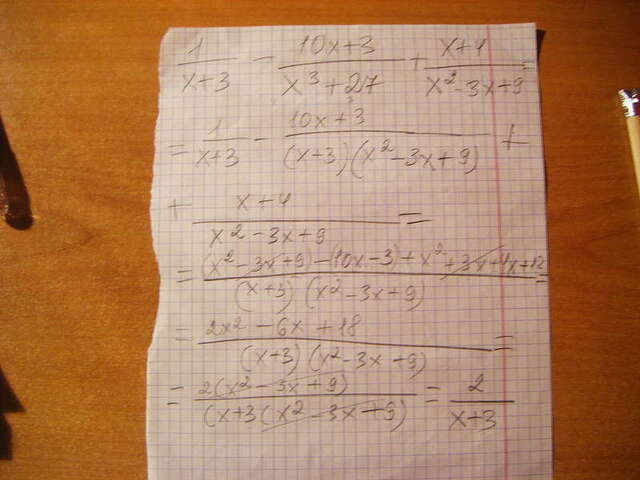 1/(x+3) - (10x+3)/(x³+27) + (x+4)/(x²-3x+9) =
= 1/(x+3) - (10x+3)/((x+3)(x²-3x+9)) +
+ (x+4)/(x²-3x+9) =
= ((x²-3x+9)-(10x-3)+x²+3x+4x+12)/((x+3)(x²-3x+9)) =
= (2x²-6x+18)/((x+3)(x²-3x+9)) =
= 2(x²-3x+9)/((x+3(x²-3x+9)) = 2/(x+3)